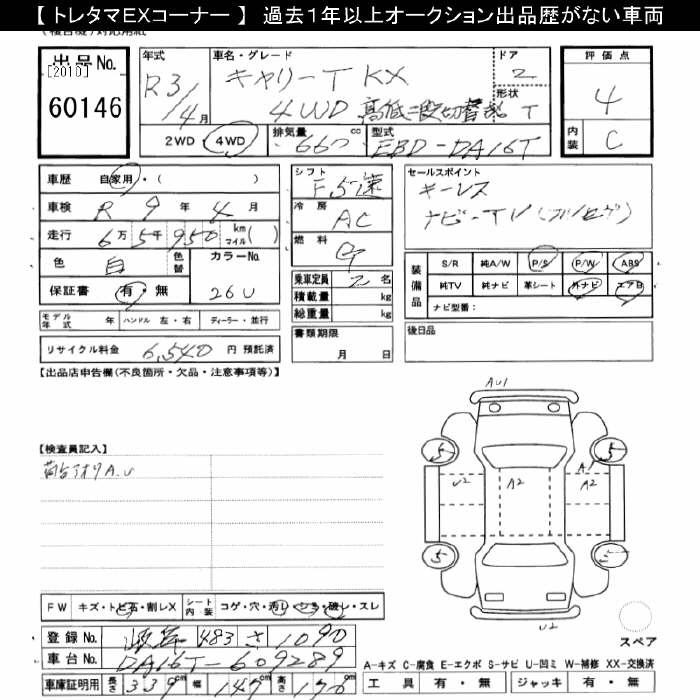 【 トレタマEXコーナー 】 過去１年以上オークション出品歴がない車両
出品No.
[2010]
60146
年式
R3/4月
車名・グレード
キャリーT KX
4WD 高低二段切替 T
ドア
2
形状
2WD ・ 4WD
排気量 660 cc
型式 EBD-DA16T
評価点
4
内装 C
車歴 自家用 ・ ( )
車検 R 9 年 4 月
走行 6万 5千 950 km マイル ( )
色 白 色替
カラーNo. 26U
保証書 有 ・ 無
モデル年式 年 ハンドル 左・右 ディーラー・並行
リサイクル料金 6,540 円 預託済
シフト F5速
冷房 AC
燃料 G
乗車定員 2 名
積載量 kg
総重量 kg
書類期限
月 日
セールスポイント
キーレス
ナビーTV(フルセグ)
装備品
S/R 純A/W P/S P/W ABS
純TV 純ナビ 革シート 外ナビ エアB
ナビ型番:
後日品
【出品店申告欄(不良箇所・欠品・注意事項等)】
【検査員記入】
荷台アオリA.U
AU1
5
5
U2
A2
A1
A2
5
5
U2
スペア
FW キズ・トビ石・割レX シート内装 コゲ・穴・汚レ・シミ・破レ・スレ
登録No. 岐阜 483 さ 1090
車台No. DA16T-609289
車庫証明用 長さ 339 幅 147 高さ 176
A-キズ C-腐食 E-エクボ S-サビ U-凹ミ W-補修 XX-交換済
工具 有・無 ジャッキ 有・無